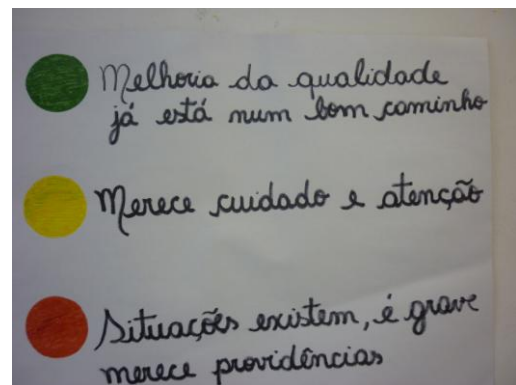 Melhoria da qualidade
já está num bom caminho
Merece cuidado e atenção
Situações existem, é grave
merece providências